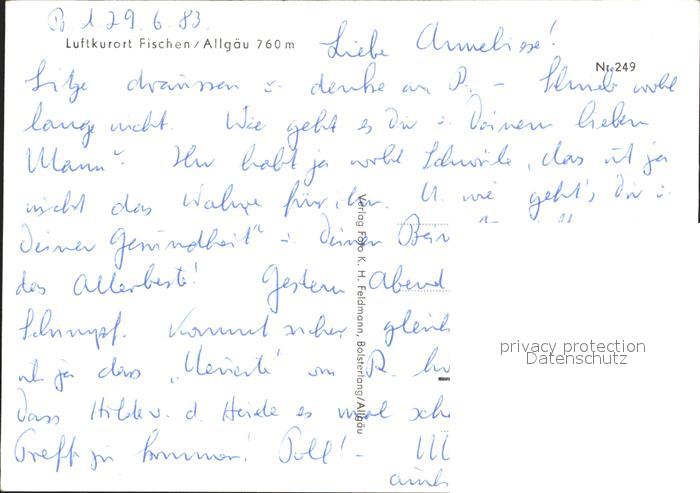 29.6.83.
Luftkurort Fischen/Allgäu 760 m
Nr. 249
Liebe Anneliese!
Sitze draussen u. denke an P. – Schrieb wohl
lange nicht. Wie geht es Dir u. Deinem lieben
Mann? Ihr habt ja wohl Schwüle, das ist ja
nicht das Wahre für ihn. U. wie geht's Dir u.
Deiner Gesundheit u. Deinen
das Allerbeste! Gestern Abend
Schnupf. Kommt sicher gleich
ist ja das
Dass Hilde v. d. Heide es mal
Treff zu kommen! Toll! –
auch
Verlag Foto K. H. Feldmann, Bolsterlang/Allgäu
privacy protection
Datenschutz